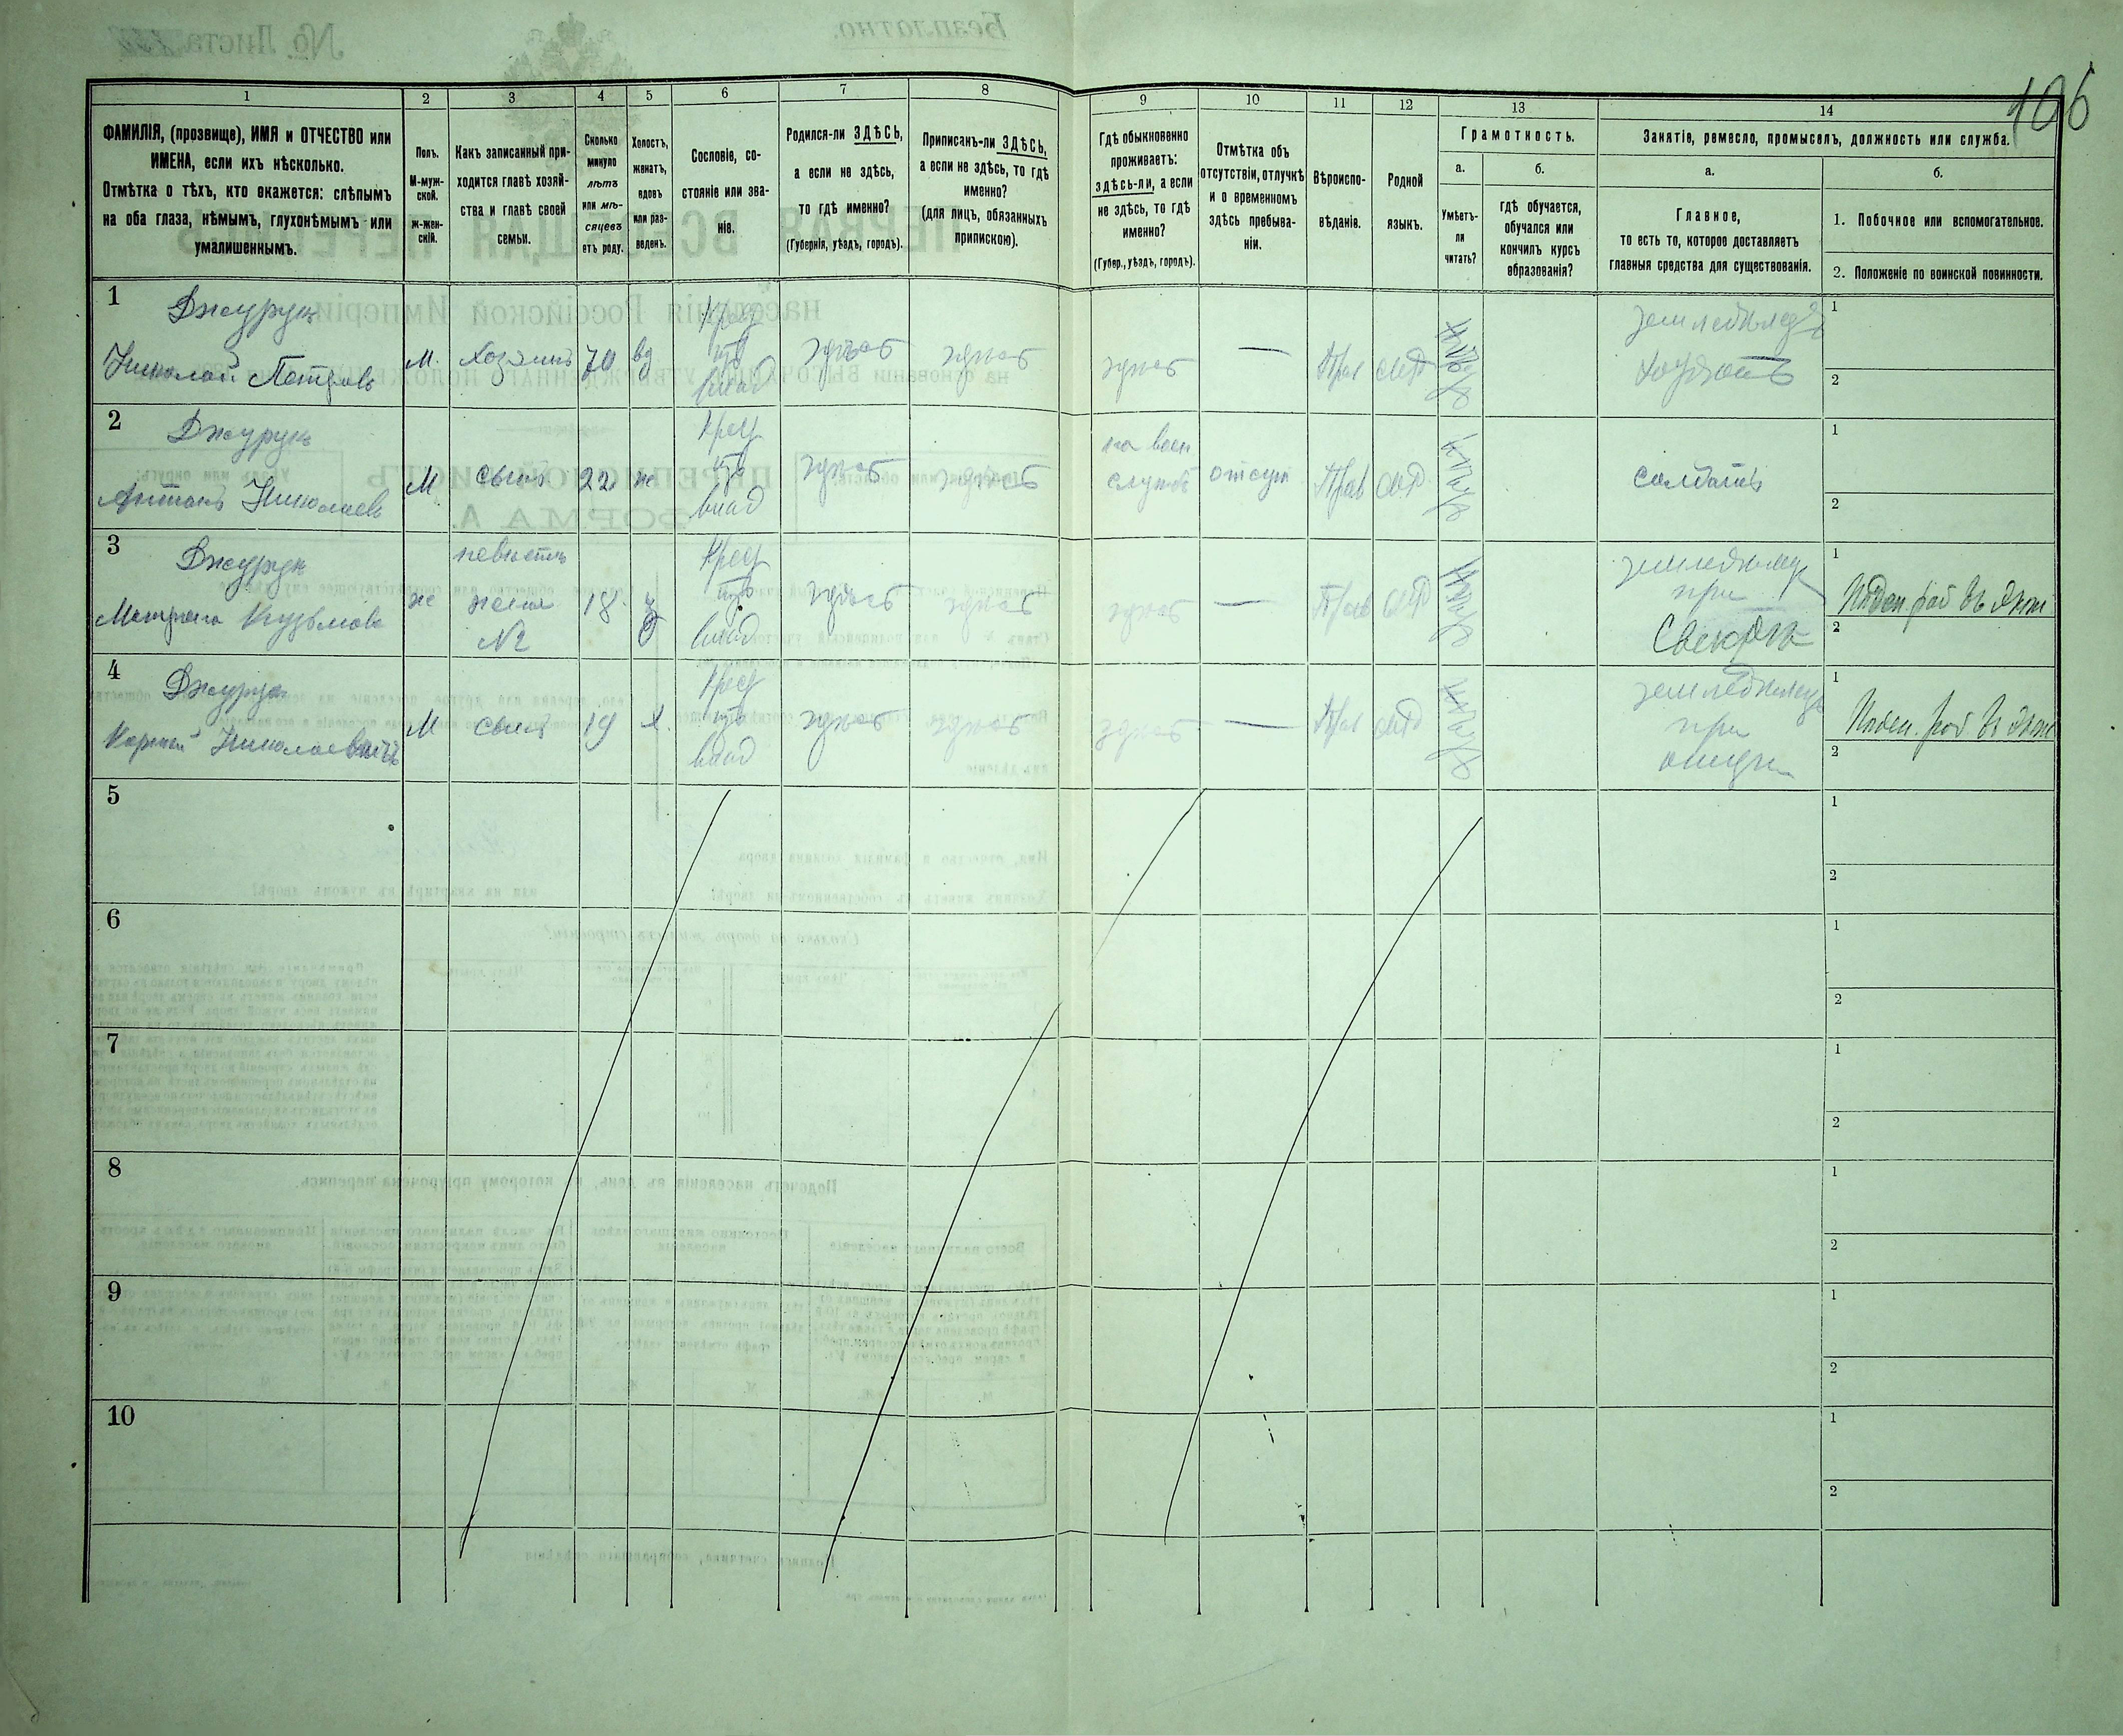 106
1 2 3 4 5 6 7 8 9 10 11 12 13 14
ФАМИЛІЯ, (прозвище), ИМЯ и ОТЧЕСТВО или
ИМЕНА, если ихъ нѣсколько.
Отмѣтка о тѣхъ, кто окажется: слѣпымъ
на оба глаза, нѣмымъ, глухонѣмымъ или
умалишеннымъ.
Полъ.
М-муж-
ской.
ж-жен-
скій.
Какъ записанный при-
ходится главѣ хозяй-
ства и главѣ своей
семьи.
Сколько
минуло
лѣтъ
или мѣ-
сяцевъ
отъ роду.
Холостъ,
женатъ,
вдовъ
или раз-
веденъ.
Сословіе, со-
стояніе или зва-
ніе.
Родился-ли ЗДѢСЬ,
а если не здѣсь,
то гдѣ именно?
(Губернія, уѣздъ, городъ).
Приписанъ-ли ЗДѢСЬ,
а если не здѣсь, то гдѣ
именно?
(для лицъ, обязанныхъ
припискою).
Гдѣ обыкновенно
проживаетъ:
здѣсь-ли, а если
не здѣсь, то гдѣ
именно?
(Губер., уѣздъ, городъ).
Отмѣтка объ
отсутствіи, отлучкѣ
и о временномъ
здѣсь пребыва-
ніи.
Вѣроиспо-
вѣданіе.
Родной
языкъ.
Грамотность.
а.
Умѣетъ-
ли
читать?
б.
гдѣ обучается,
обучался или
кончилъ курсъ
образованія?
Занятіе, ремесло, промыселъ, должность или служба.
а.
Главное,
то есть то, которое доставляетъ
главныя средства для существованія.
б.
1. Побочное или вспомогательное.
2. Положеніе по воинской повинности.
1
Джурукъ
Николай Петровъ
М. Хозяинъ 70 вд
Крес
влад
здѣсь здѣсь здѣсь — Прав
земледѣлецъ
хозяинъ
1
2
2
Джурукъ
Антонъ Николаевъ
М сынъ 22 ж
Крес
влад
здѣсь здѣсь
на воен
службѣ
отсут Прав
солдатъ
1
2
3
Джурукъ
Матрена Кузьмова
ж
невѣстка
жена
№2
18. з
Крес
влад
здѣсь здѣсь здѣсь — Прав
земледѣлец
при
свекрѣ
1 Поден. раб въ экон
2
4
Джурукъ
Николаевичъ
М сынъ 19 х.
Крес
влад
здѣсь здѣсь здѣсь — Прав
земледѣлецъ
при
отцѣ
1 Поден. раб въ экон
2
5
1
2
6
1
2
7
1
2
8
1
2
9
1
2
10
1
2